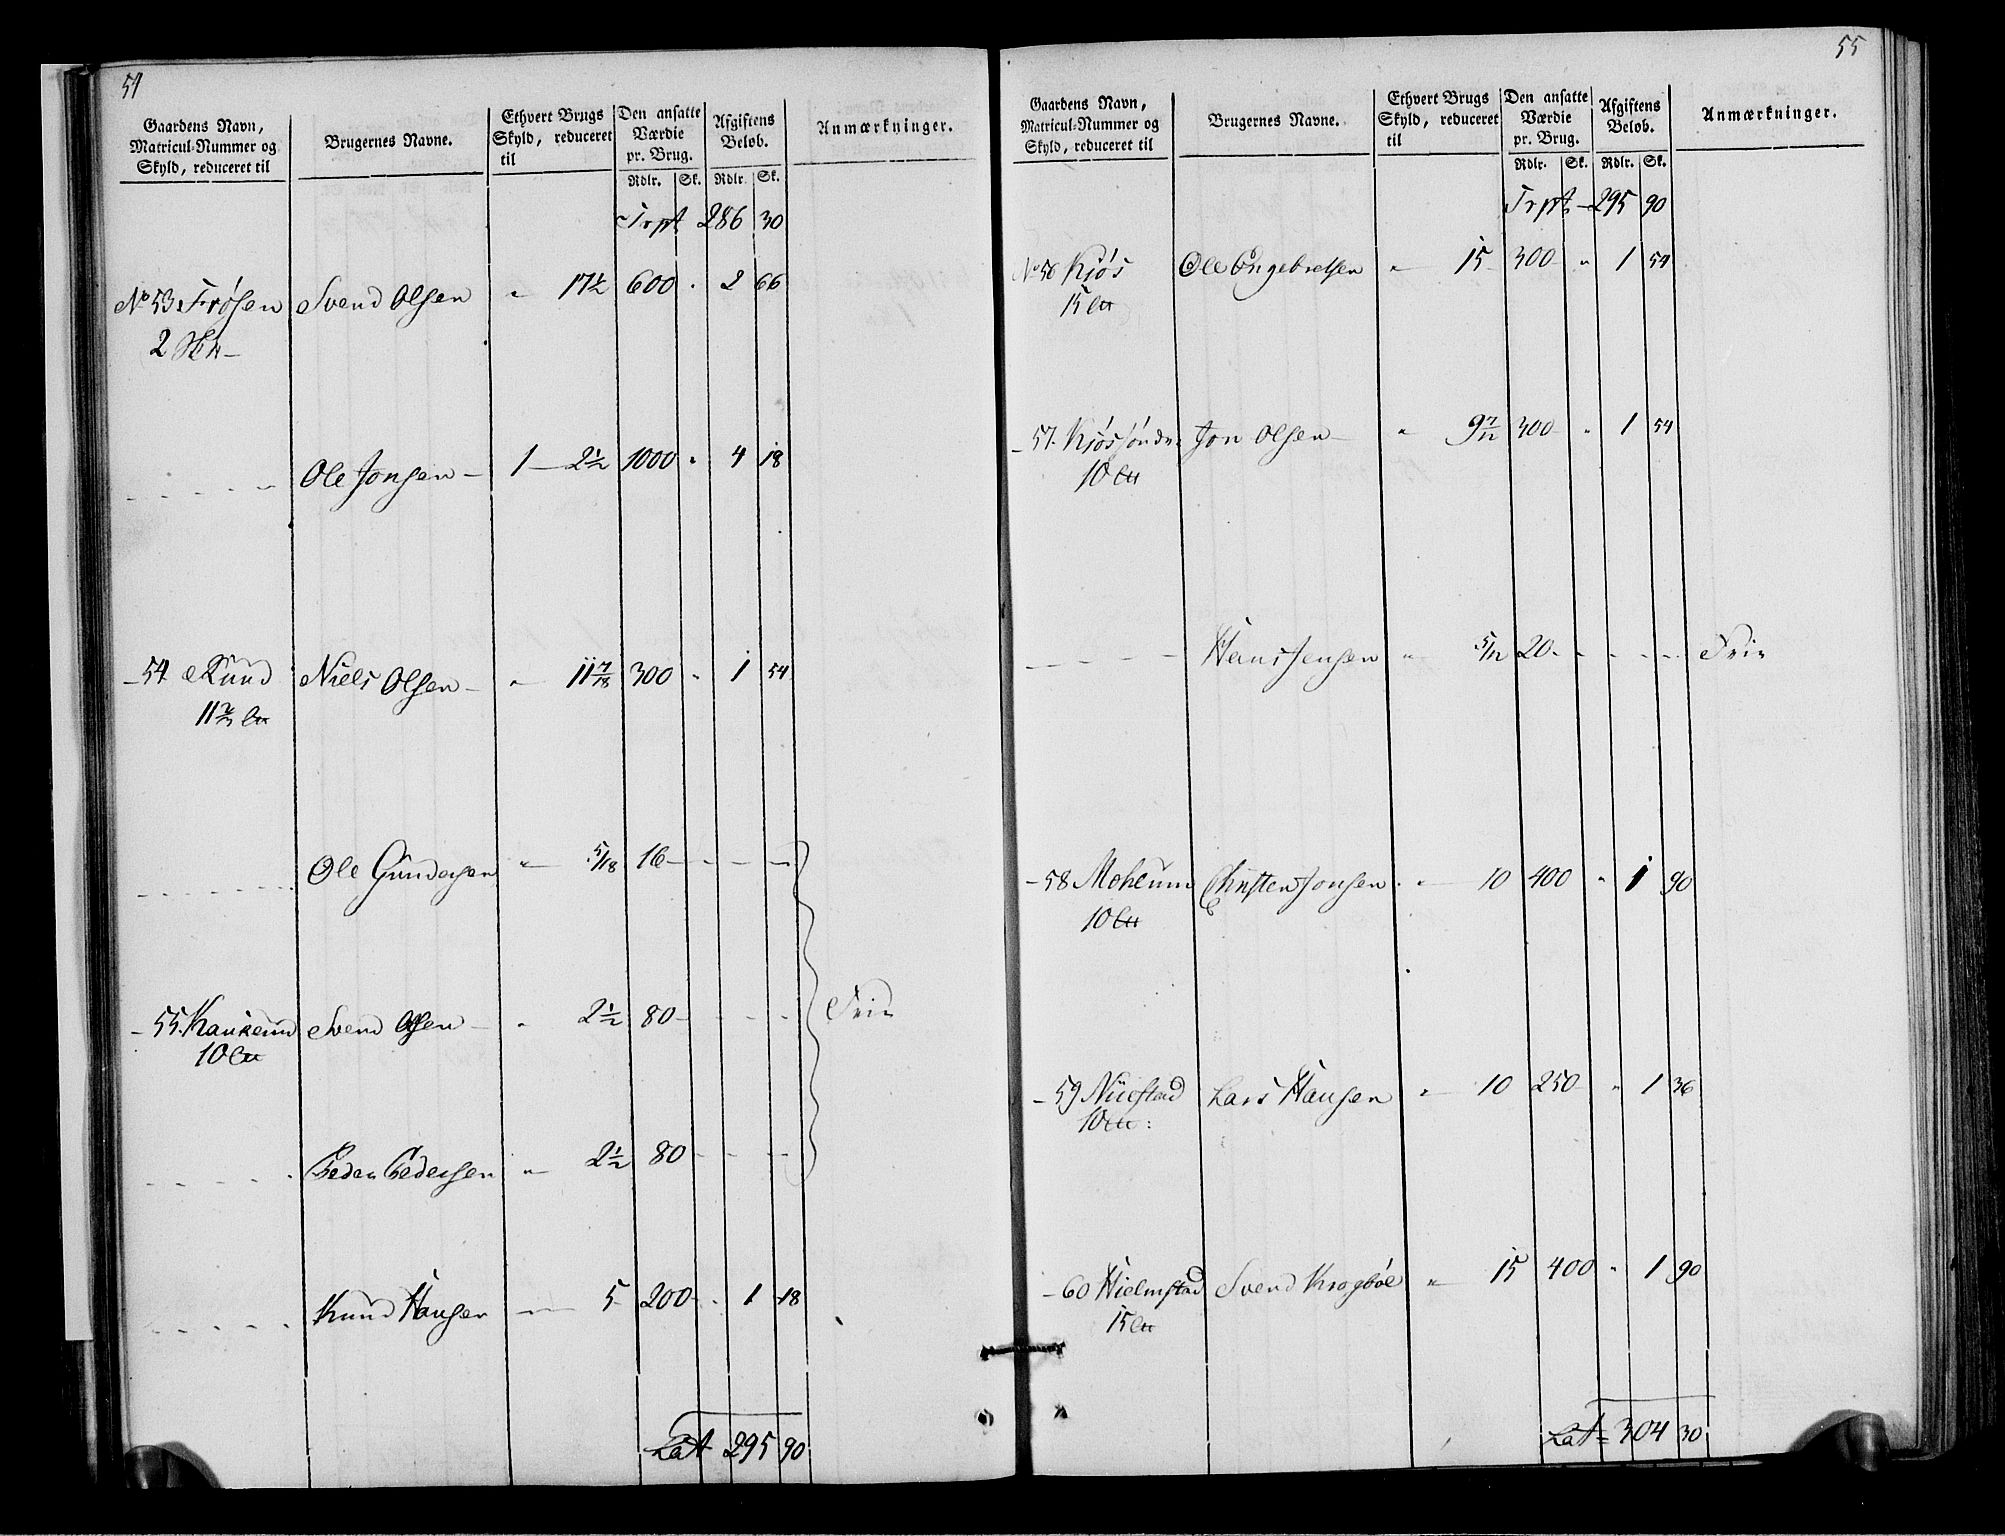 54
Gaardens Navn, Matricul-Nummer og Skyld, reduceret til
Brugernes Navne.
Ethvert Brugs Skyld, reduceret til
Den ansatte Værdie pr. Brug.
Rdlr. Sk.
Afgiftens Beløb.
Rdlr. Sk.
Anmærkninger.
Trpt 286 30
No 53 Frøsen Svend Olsen " 17½ 600 " 2 66
2
Ole Jonsen 1 - 2½ 1000 " 4 18
54 Rund Niels Olsen " 11 7/18 300 " 1 54
11⅔
Ole Gundersen " 5/18 16
55. Svend Olsen " 2½ 80 Frie
10
Peder Pedersen " 2½ 80
Knud Hansen " 5 200 " 1 18
Lat 295 90
55
Gaardens Navn, Matricul-Nummer og Skyld, reduceret til
Brugernes Navne.
Ethvert Brugs Skyld, reduceret til
Den ansatte Værdie pr. Brug.
Rdlr. Sk.
Afgiftens Beløb.
Rdlr. Sk.
Anmærkninger.
Trpt 295 90
No 56 Kjøs Ole Engebretsen " 15 300 " 1 54
15
57. Kjøs søndre Jon Olsen " 9 7/12 300 " 1 54
10
Hans Jensen " 5/12 20 Frie
58 Moheum Christen Jonsen " 10 400 " 1 90
10
59 Lars Hansen " 10 250 " 1 36
10
60 Hielmstad Svend Krogbøl " 15 400 " 1 90
15
Lat 304 30